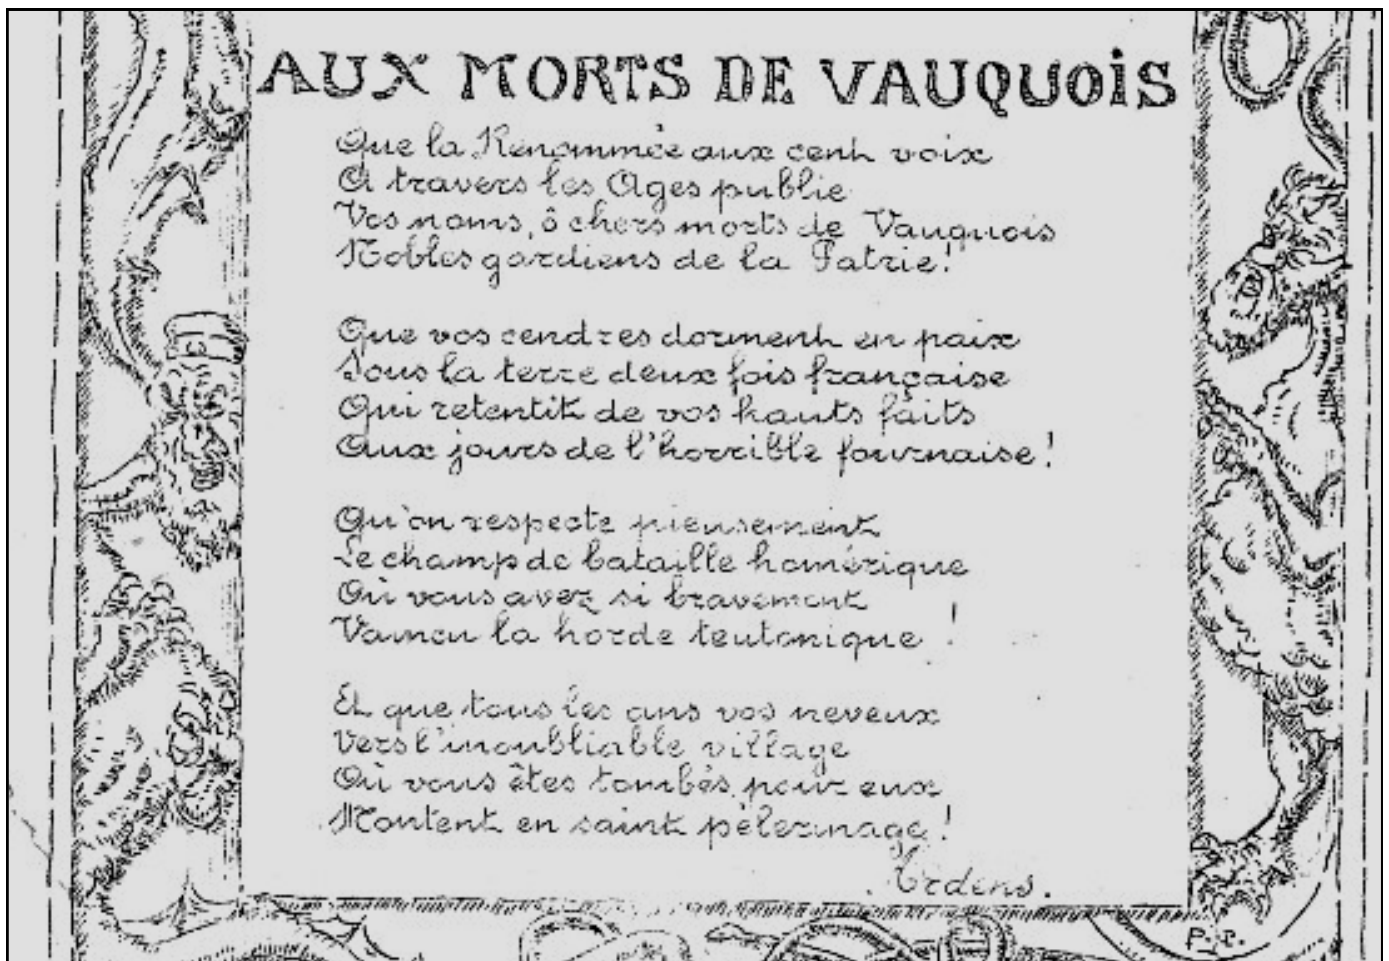 AUX MORTS DE VAUQUOIS
Que la Renommée aux cent voix
A travers les Ages publie
Vos noms, ô chers morts de Vauquois
Nobles gardiens de la Patrie!
Que vos cendres dorment en paix
Sous la terre deux fois française
Qui retentit de vos hauts faits
Aux jours de l'horrible fournaise!
Qu'on respecte pieusement
Le champ de bataille homérique
Où vous avez si bravement
Vaincu la horde teutonique !
Et que tous les ans vos neveux
Vers l'inoubliable village
Où vous êtes tombés, pour eux
Montent en saint pèlerinage!